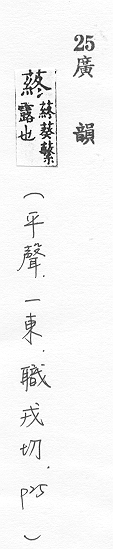 25 廣韻
蔠 蔠葵繁
露也
(平聲．一東．職戎切．p25)